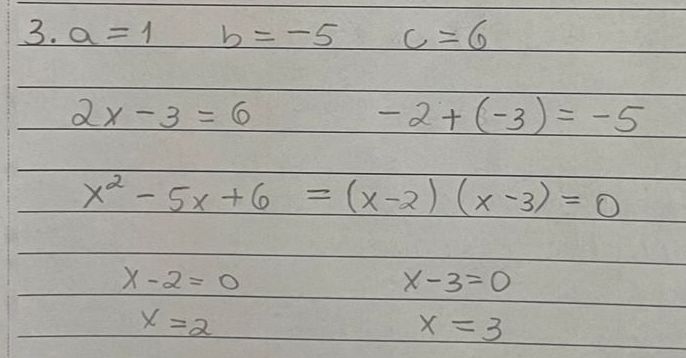 3. a = 1 b = -5 c = 6
2x - 3 = 6 -2 + (-3) = -5
x² - 5x + 6 = (x-2) (x-3) = 0
x - 2 = 0 x - 3 = 0
x = 2 x = 3